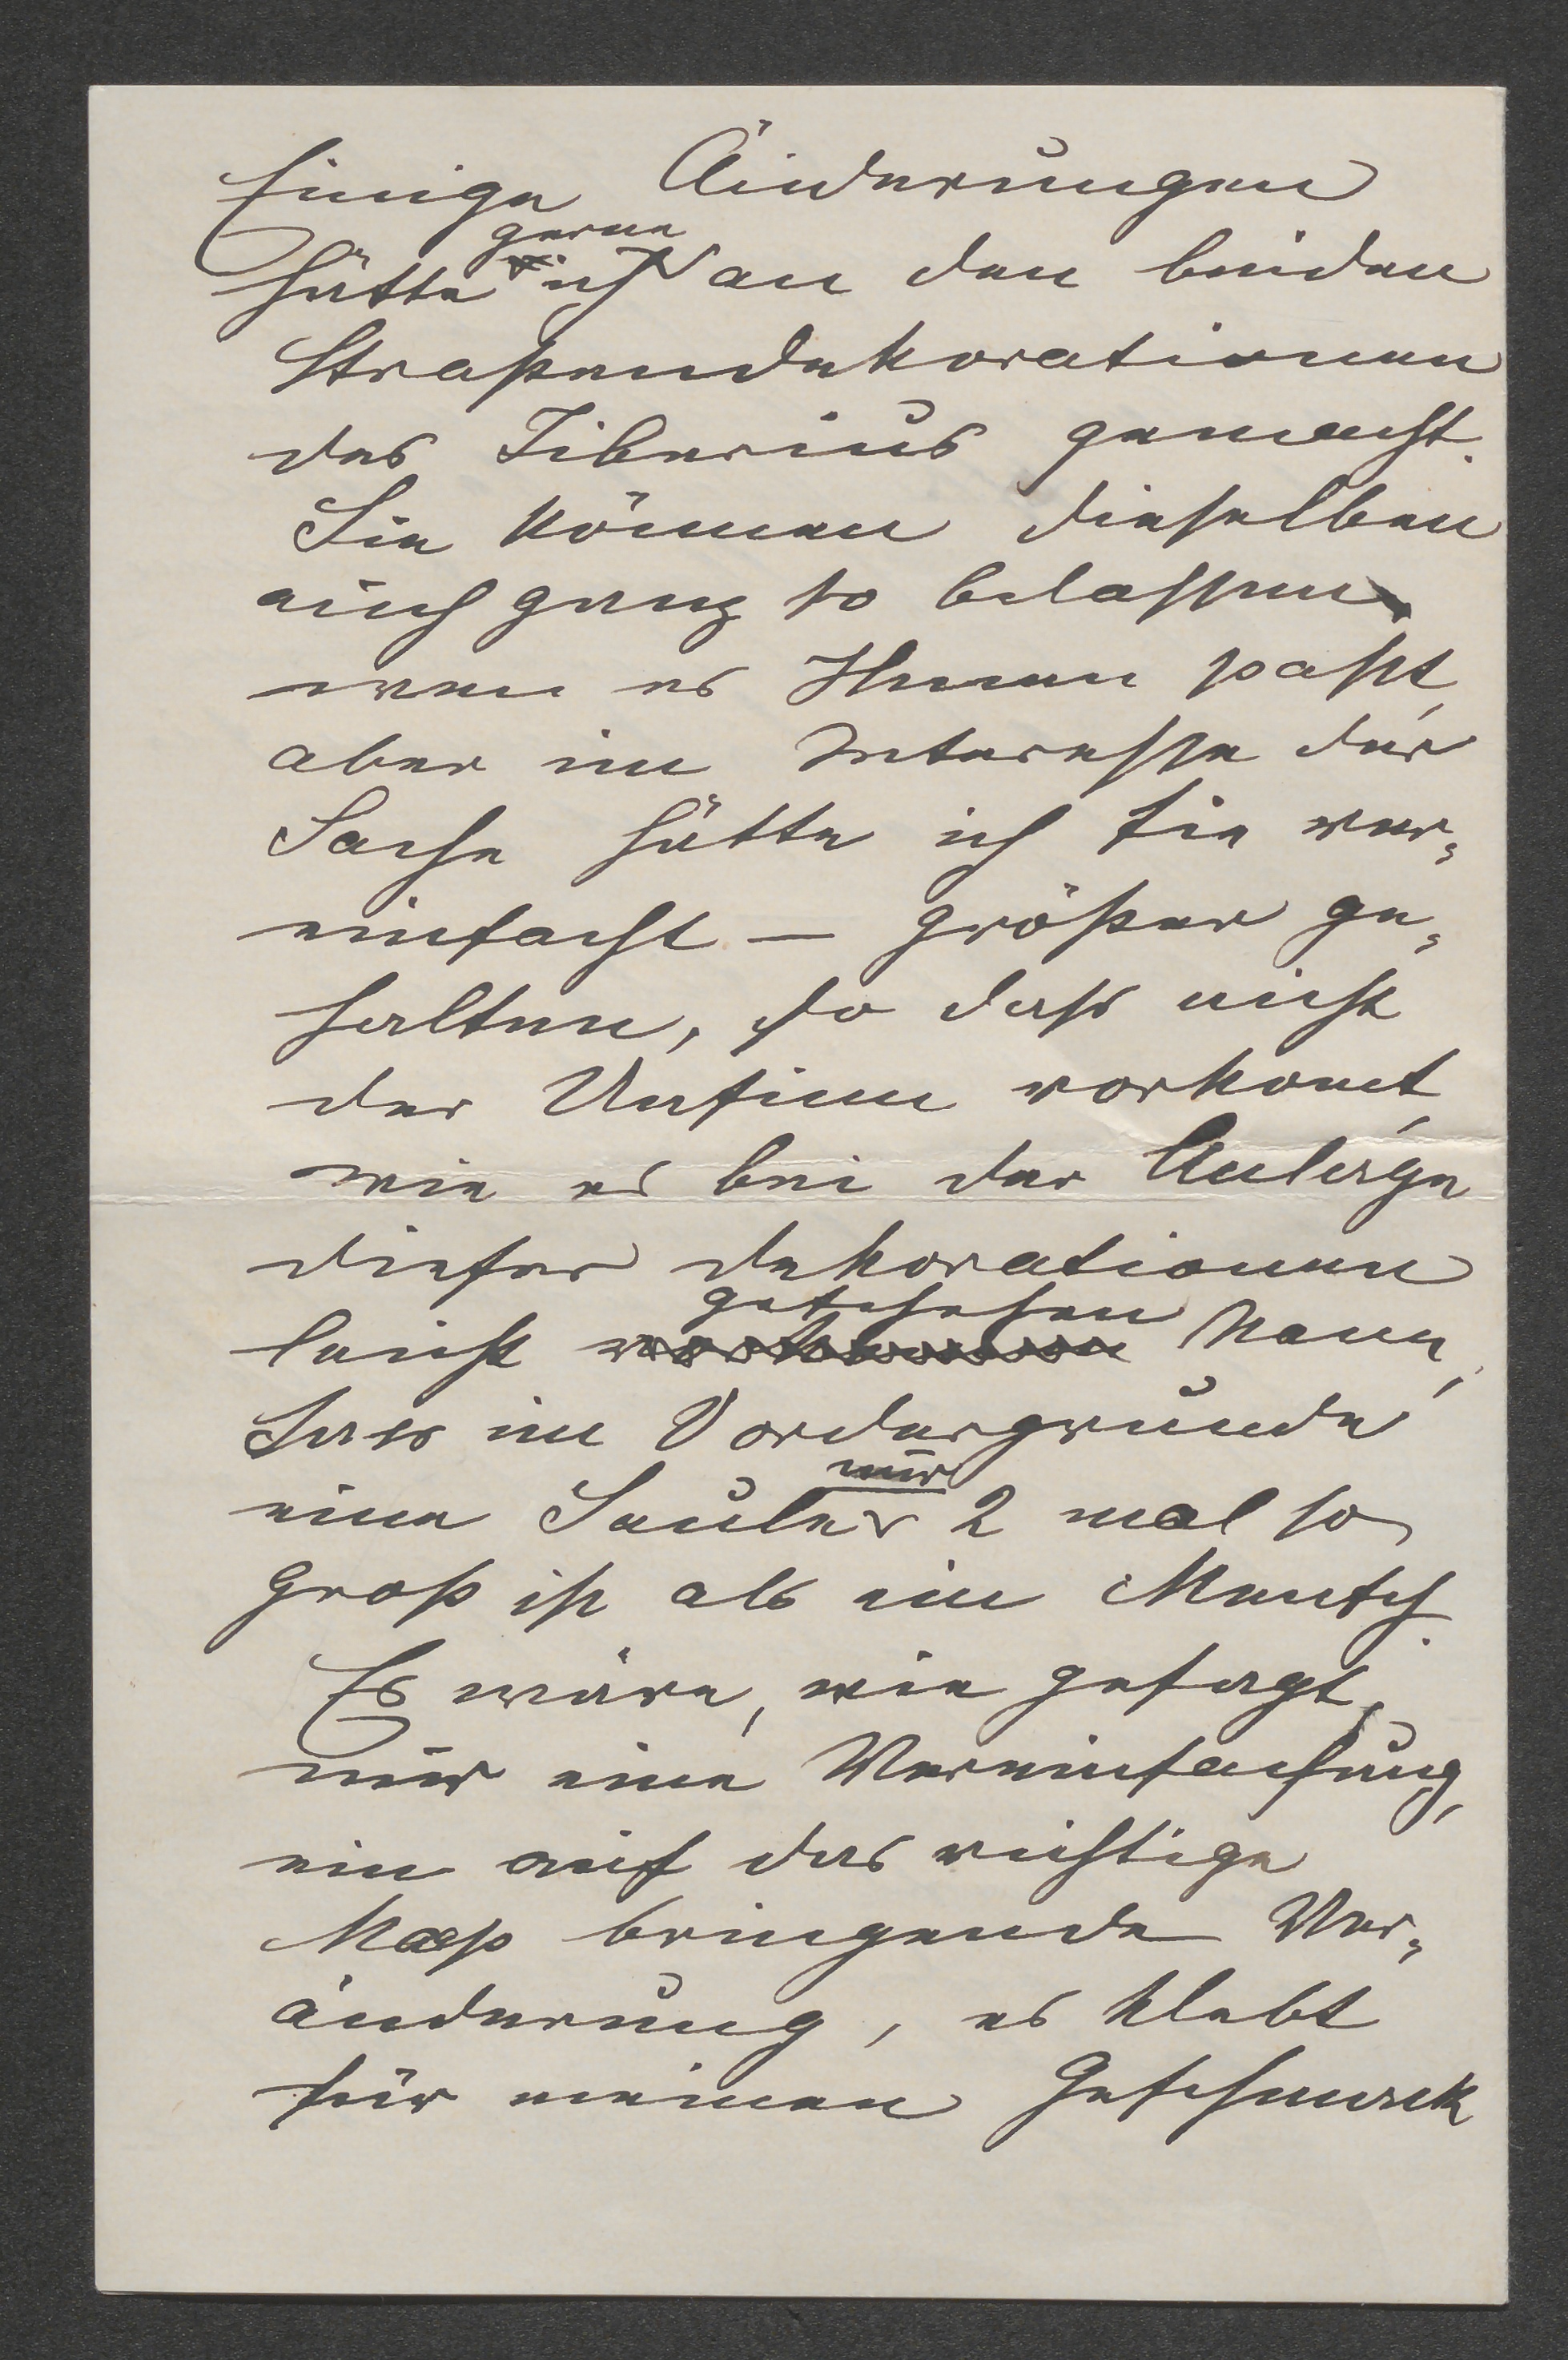 Einige Änderungen
hätte ich gerne an den beiden
Straßendekorationen
des Tiberius gemacht.
Sie können dieselben
auch ganz so belassen
wen es Ihnen paßt,
aber im Interesse der
Sache hätte ich sie ver=
einfacht – größer ge=
halten, so dass nicht
der Unsinn vorkomt,
wie es bei der Anlage
dieser Dekorationen
leicht geschehen kann,
dass im Vordergrunde
eine Säule nur 2 mal so
groß ist als ein Mensch.
Es wäre, wie gesagt,
nur eine Vereinfachung,
ein auf das richtige
Maß bringende Ver=
änderung, es klebt
für meinen Geschmack